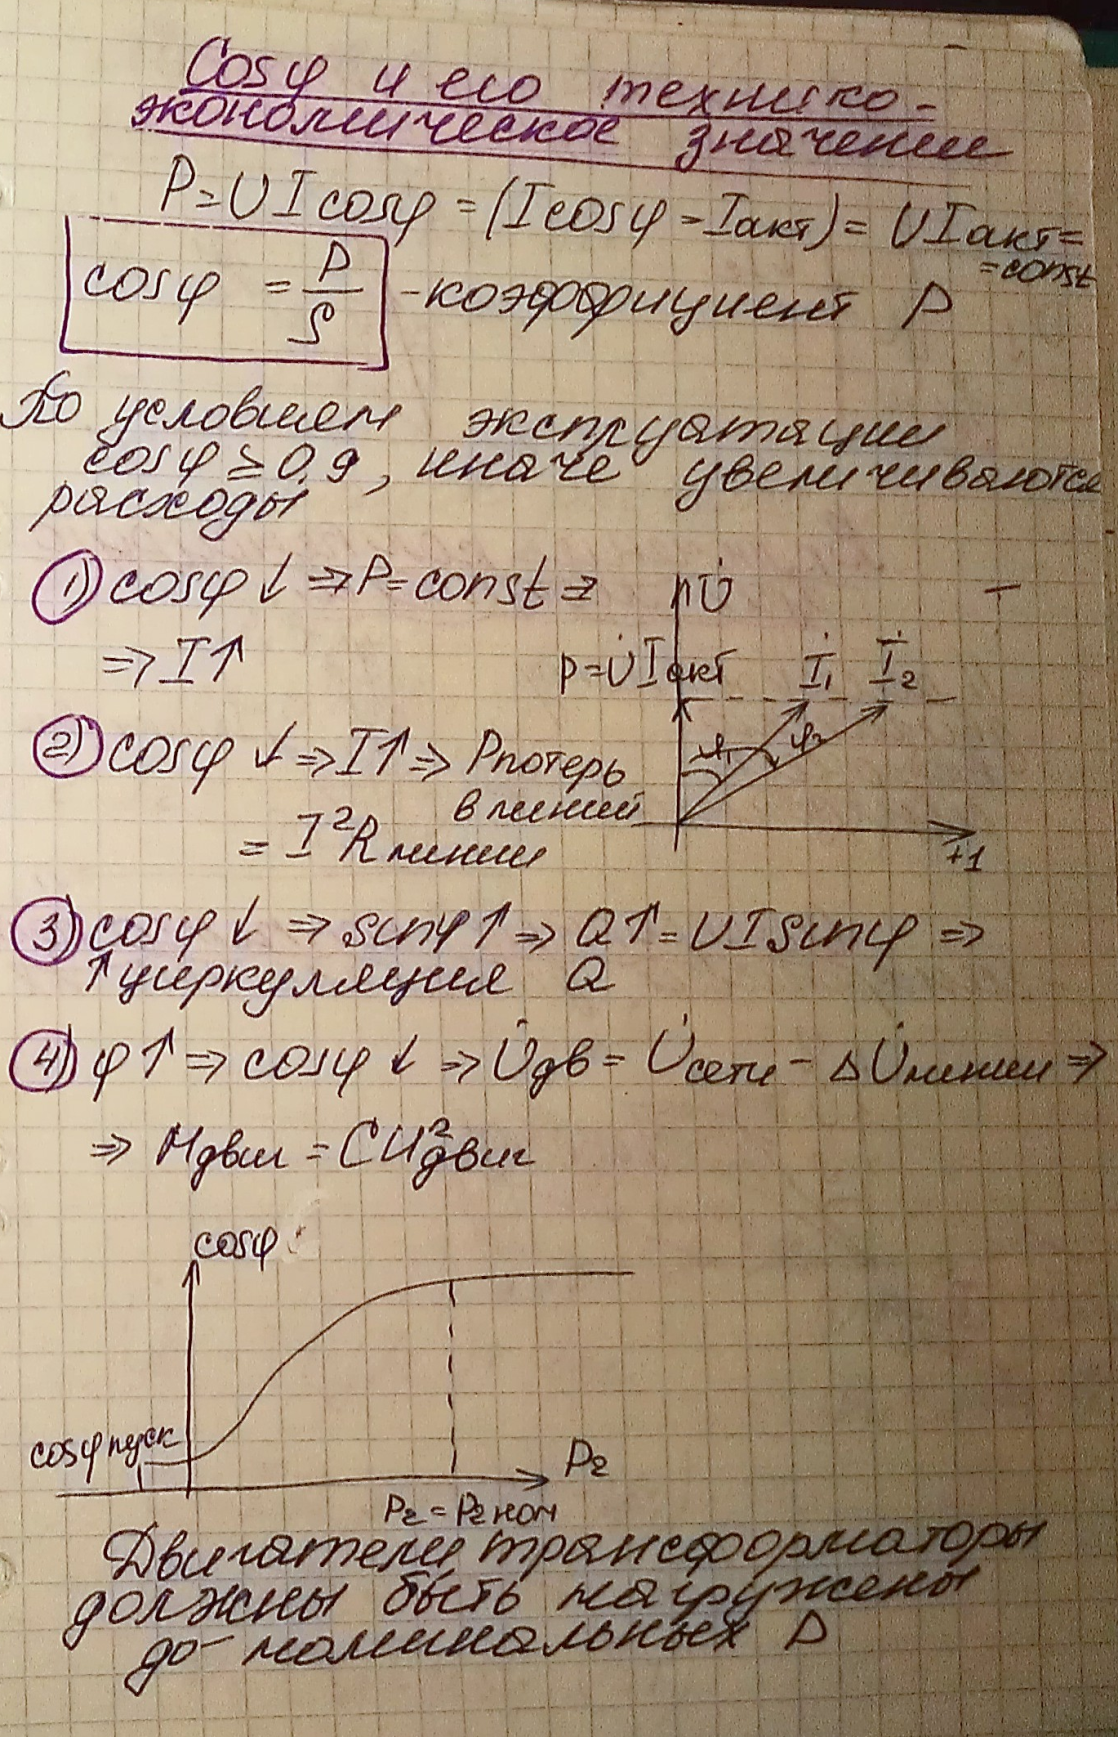 Cosφ и его технико-
экономическое значение
P = UIcosφ = (Icosφ = Iакт) = UIакт =
= const
cosφ = P/S - коэффициент P
По условиям эксплуатации
cosφ ≥ 0,9, иначе увеличиваются
расходы
1) cosφ ↓ ⇒ P = const ⇒
⇒ I↑
U̇
P = U̇Iакт İ₁ İ₂
φ₁ φ₂
+1
2) cosφ ↓ ⇒ I↑ ⇒ Pпотерь
в линии
= I²Rлинии
3) cosφ ↓ ⇒ sinφ↑ ⇒ Q↑ = UIsinφ ⇒
↑циркуляция Q
4) φ↑ ⇒ cosφ ↓ ⇒ U̇дв = U̇сети - ΔU̇линии ⇒
⇒ Mдвиг = CU²двиг
cosφ
cosφпуск
P₂
P₂ = P₂ном
Двигатели, трансформаторы
должны быть нагружены
до номинальных P